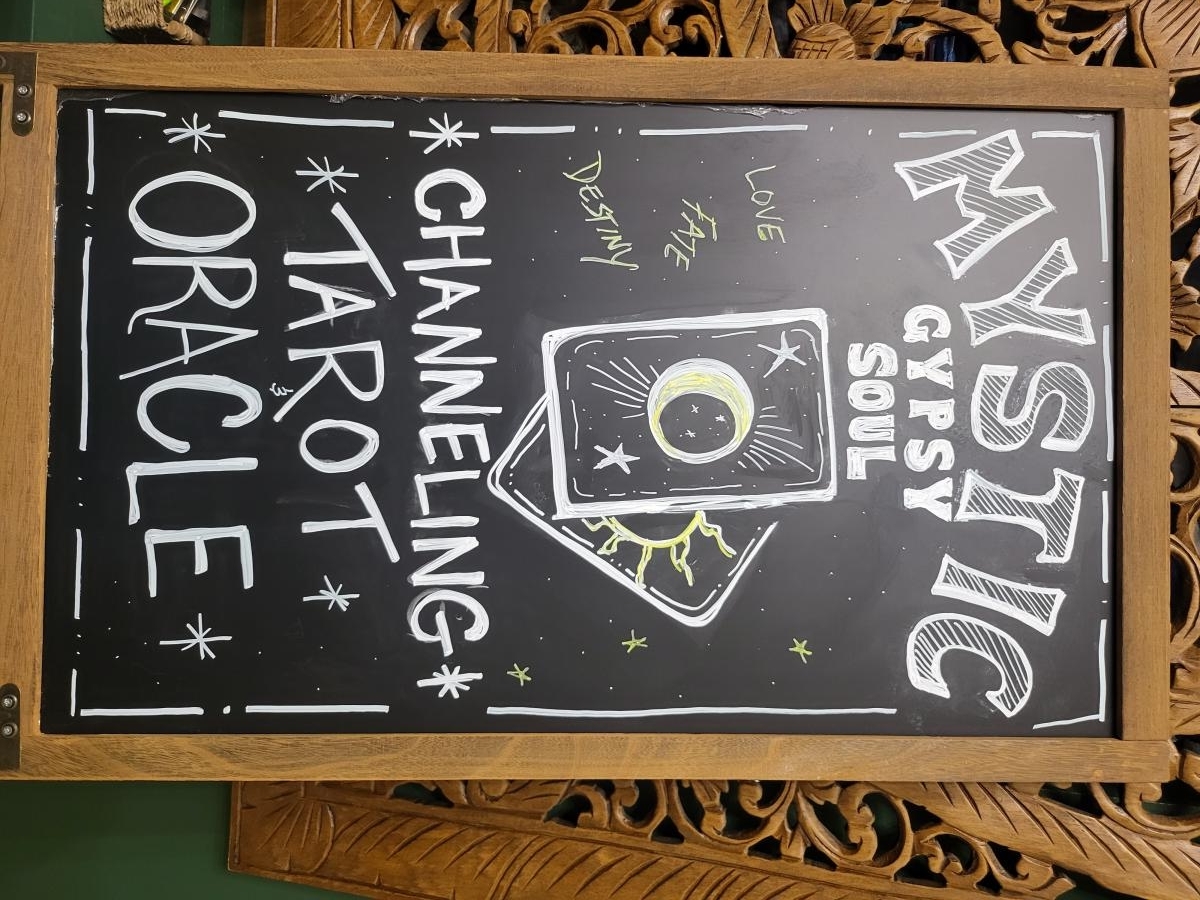 MYSTIC
GYPSY
SOUL
LOVE
FATE
DESTINY
*CHANNELING*
*TAROT*
&
*ORACLE*